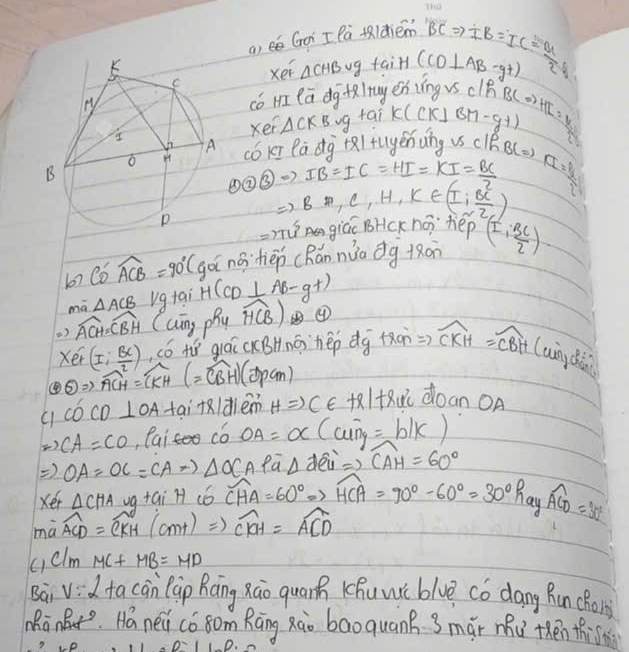 a) Gọi I là trđiểm BC => IB = IC = BC/2
xét ΔCHB vg tại H (CD ⊥ AB - gt)
có HI là đg trtuyến ứng vs c/h BC => HI =
xét ΔCKB vg tại K (CK ⊥ BM - gt)
có KI là đg trtuyến ứng vs c/h BC => KI =
①②③ => IB = IC = HI = KI = BC/2
=> B, C, H, K ∈ (I; BC/2)
=> Tứ giác BHCK nội tiếp (I; BC/2)
K
C
M
I
B
O
H
A
D
b) Có ACB = 90° (góc nội tiếp chắn nửa đg tròn
mà ΔACB vg tại H (CD ⊥ AB - gt)
=> ACH = CBH (cùng phụ HCB) ④
Xét (I; BC/2), có tứ giác CKBH nội tiếp đg tròn => CKH = CBH (cùng chắn
④⑤ => ACH = CKH (= CBH) (đpcm)
c) có CD ⊥ OA tại trđiểm H => C ∈ trtrực đoạn OA
=> CA = CO, lại có OA = OC (cùng = b/k)
=> OA = OC = CA => ΔOCA là Δ đều => CAH = 60°
Xét ΔCHA vg tại H có CHA = 60° => HCA = 90° - 60° = 30° hay ACD = 30°
mà ACD = CKH (cmt) => CKH = ACD
c) C/m MC + MB = MD
Bài V: 2 ta cần lập hàng rào quanh khu vực b/vệ có dạng hcn cho
nhà. Hà nếu có 80m hàng rào bao quanh 3 mặt như trên thì S